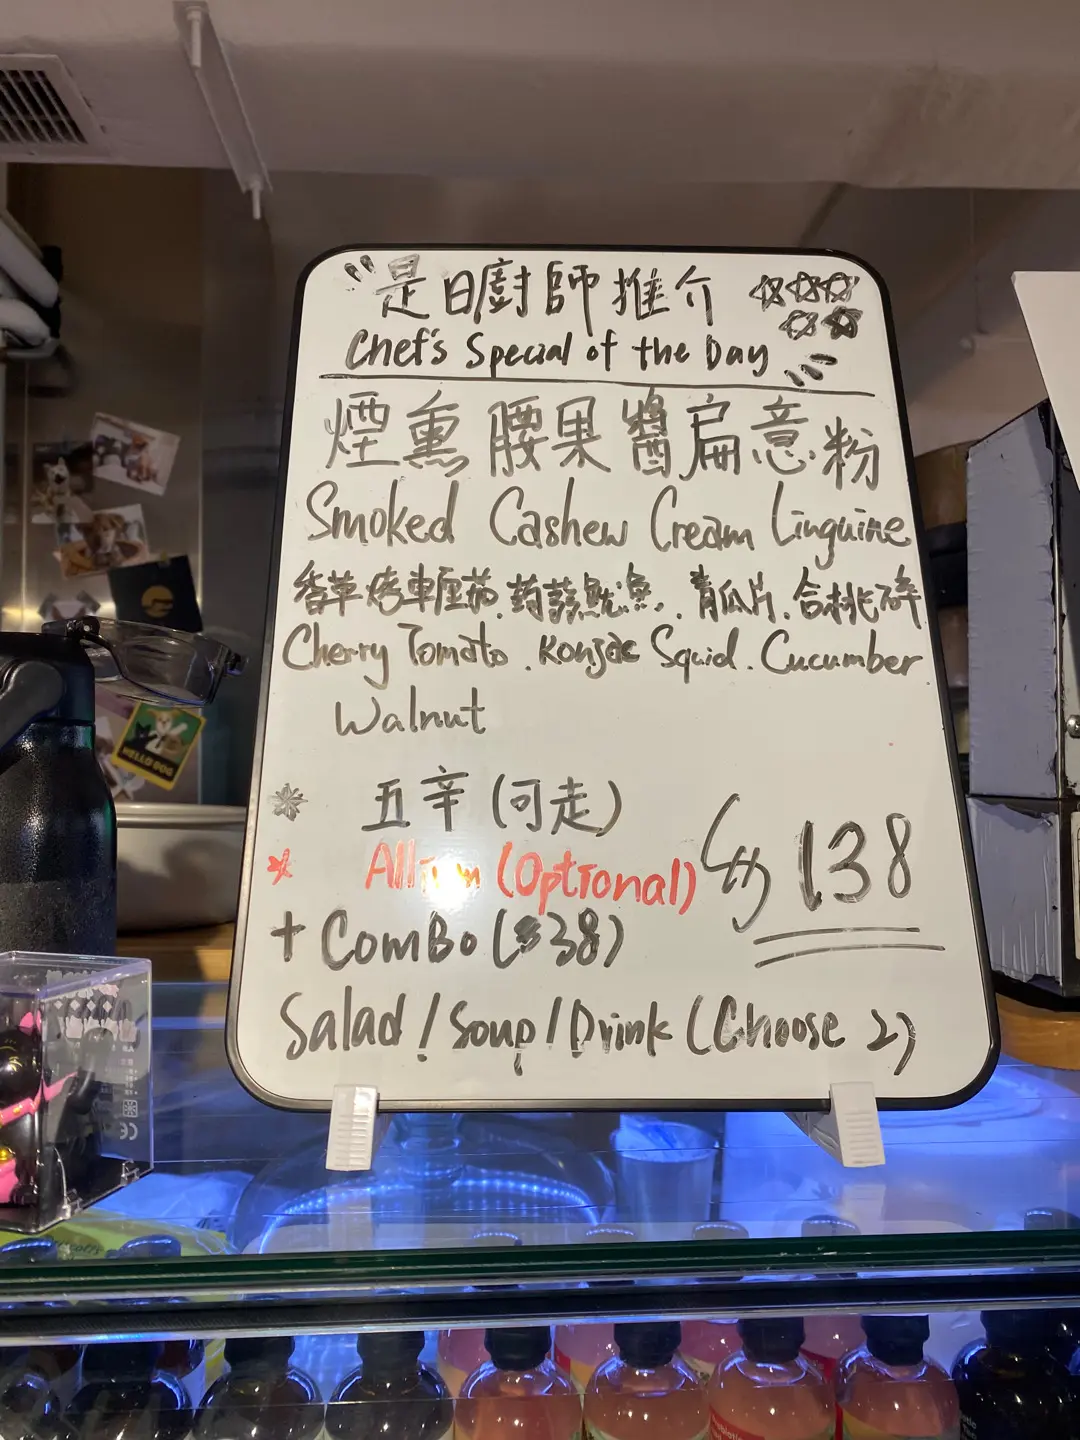 是日廚師推介
Chef's Special of the Day
煙熏腰果醬扁意粉
Smoked Cashew Cream Linguine
香草烤車厘茄.蒟蒻魷漁.青瓜片.合桃碎
Cherry Tomato. Konjac Squid. Cucumber
Walnut
五辛(可走)
Allium (Optional)
$138
+ ComBo ($38)
Salad / Soup / Drink (Choose 2)
HELLO DOG
CE